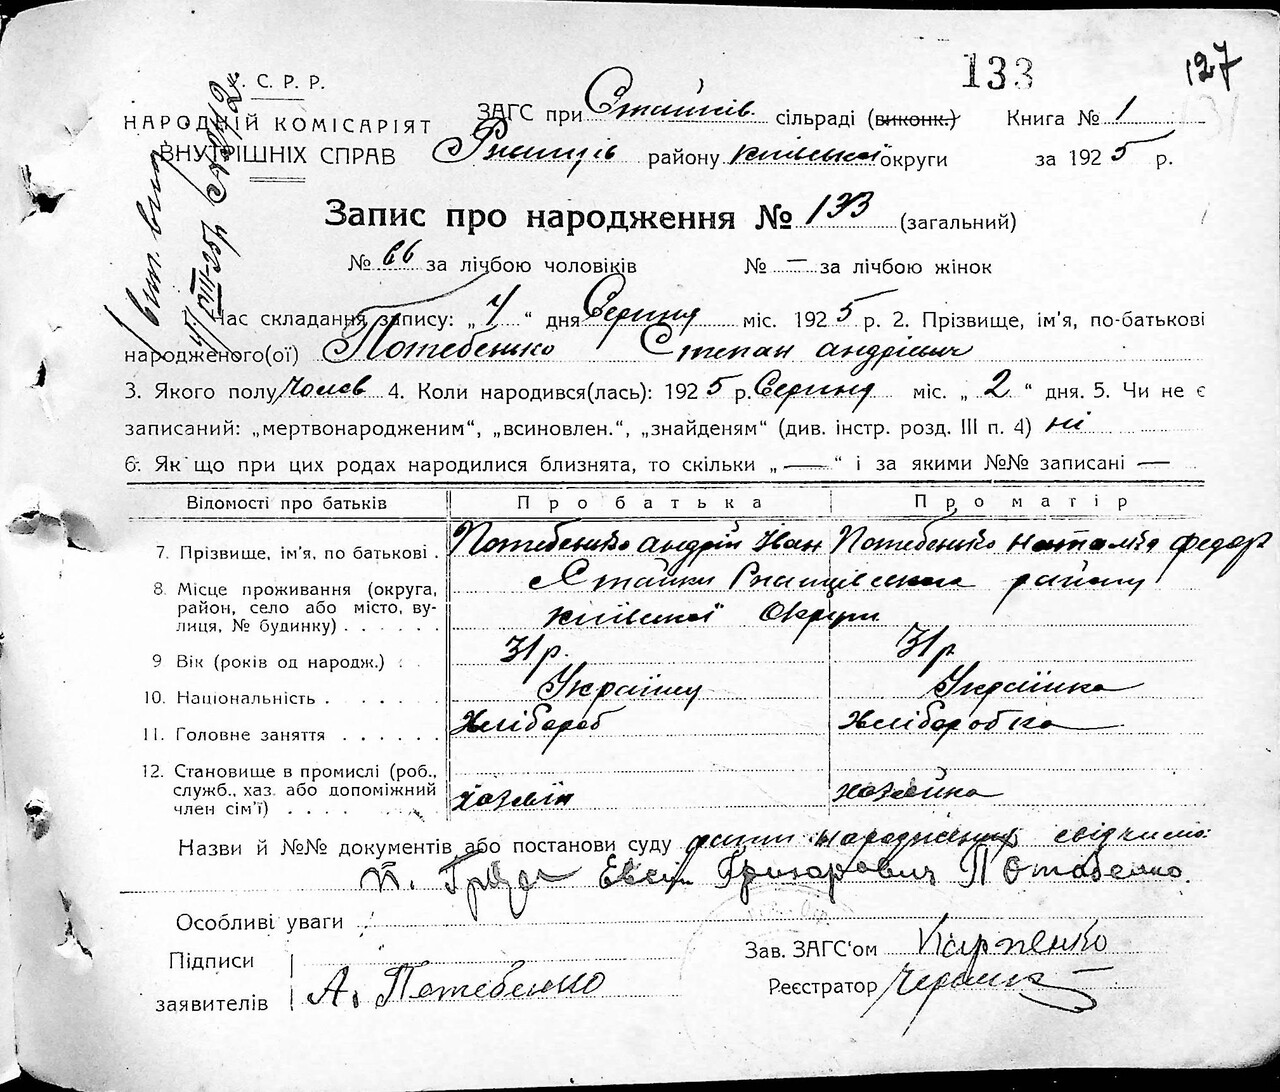 133
127
. С. Р. Р.
НАРОДНІЙ КОМІСАРІЯТ
ВНУТРІШНІХ СПРАВ
ЗАГС при Стайків. сільраді (виконк.) Книга № 1
Ржищів району київської округи за 1925 р.
Запис про народження № 133 (загальний)
№ 66 за лічбою чоловіків № — за лічбою жінок
1. Час складання запису: „4“ дня Серпня міс. 1925 р. 2. Прізвище, ім'я, по-батькові
народженого(ої) Потебенько Степан андрієвич
3. Якого полу чолов 4. Коли народився(лась): 1925 р. Серпня міс. „2“ дня. 5. Чи не є
записаний: „мертвонародженим“, „всиновлен.“, „знайденям“ (див. інстр. розд. III п. 4) ні
6. Як що при цих родах народилися близнята, то скільки „—“ і за якими №№ записані —
Відомості про батьків Про батька Про матір
7. Прізвище, ім'я, по батькові . Потебенько андрій Іван Потебенько наталія федор
8. Місце проживання (округа, район, село або місто, вулиця, № будинку) . . . . . Стайки Ржищівського району
київської Округи
9 Вік (років од народж.) : . 31 р. 31 р
10. Національність . . . . . . Українц Українка
11. Головне заняття . . . . . . Хлібороб Хліборобка
12. Становище в промислі (роб., служб., хаз. або допоміжний член сім'ї) . . . . хазяїн хазяйка
Назви й №№ документів або постанови суду факт народження свідчимо:
Евсей Григорович Потабенко
Особливі уваги
Підписи
заявителів А. Потебенко
Зав. ЗАГС'ом Карпенко
Реєстратор